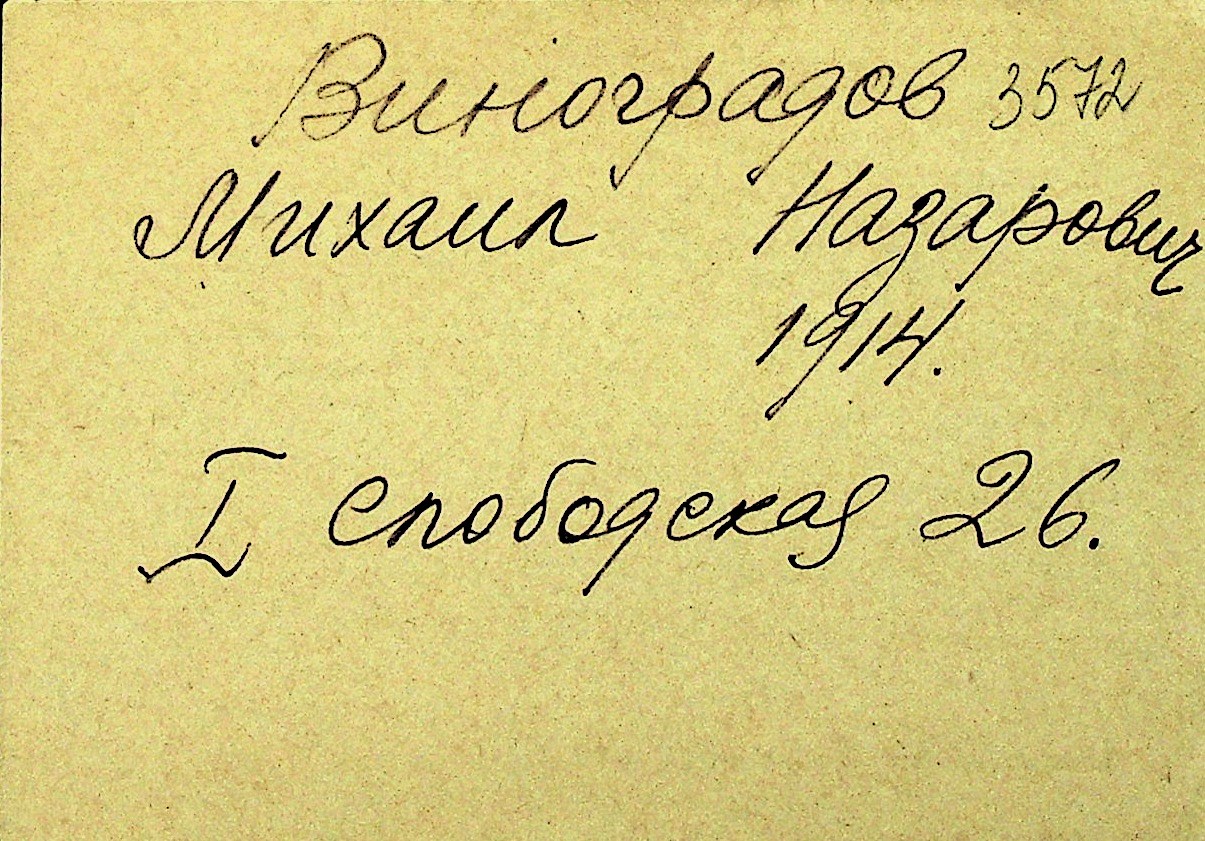 Виноградов 3572
Михаил Назарович
1914.
I Слободская 26.